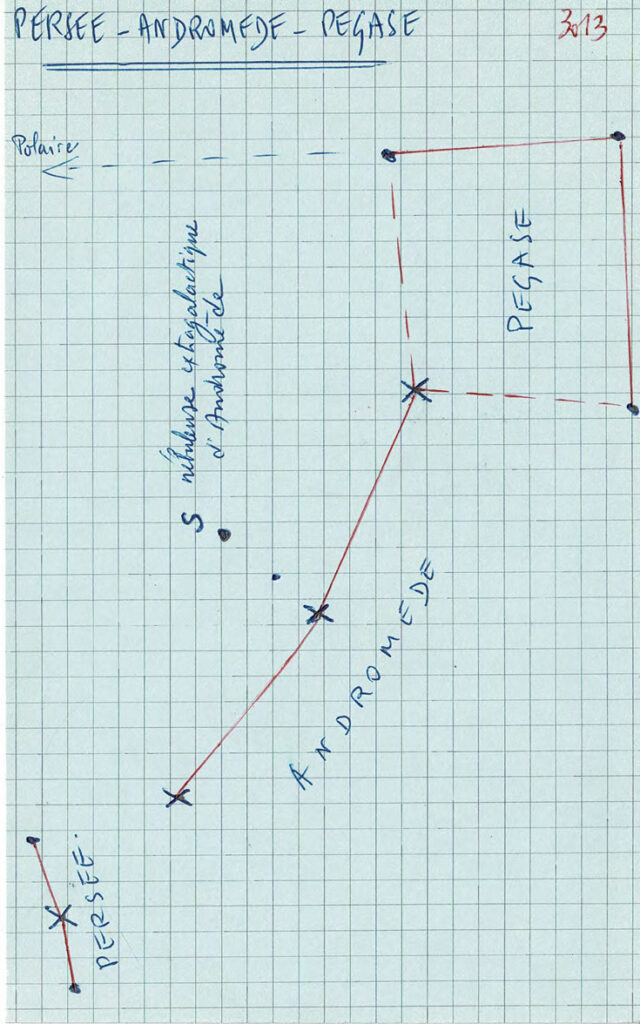 PERSEE - ANDROMEDE - PEGASE
3013
Polaire
PEGASE
nébuleuse extragalactique
d'Andromède
S
ANDROMEDE
PERSEE.